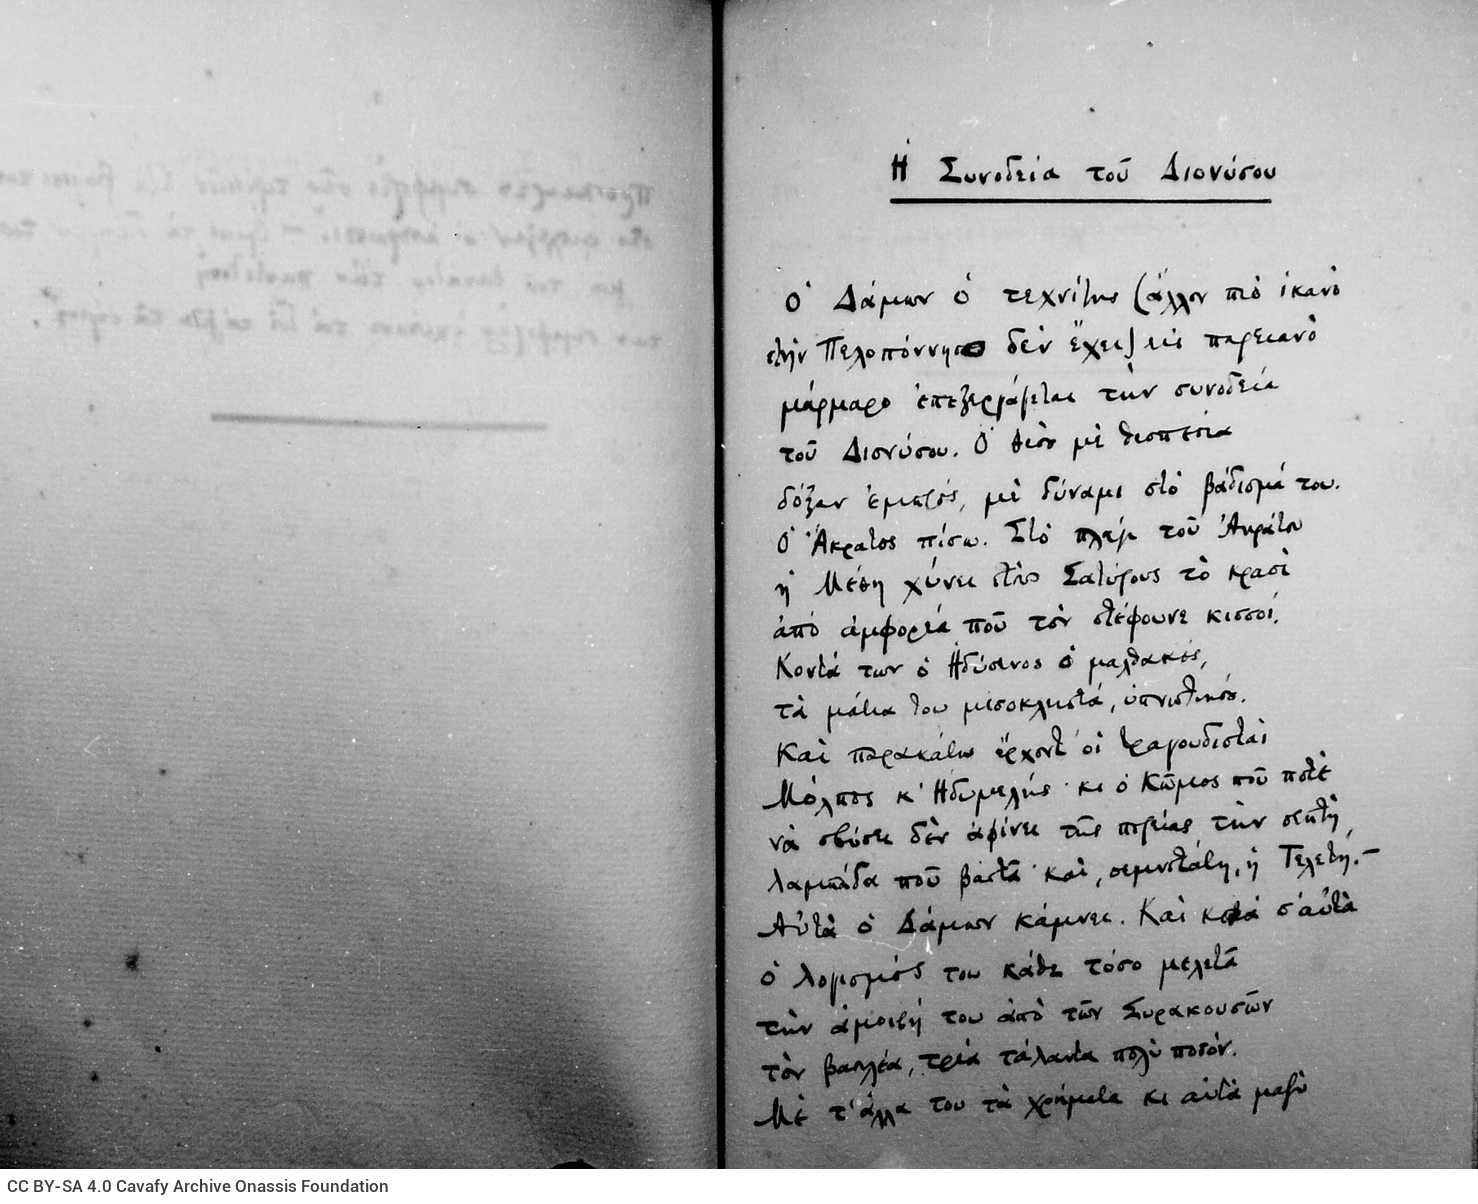 Ἡ Συνοδεία τοῦ Διονύσου
Ὁ Δάμων ὁ τεχνίτης (ἄλλον πιὸ ἱκανὸ
στὴν Πελοπόννησο δὲν ἔχει) εἰς παρειανὸ
μάρμαρο ἐπεξεργάζεται τὴν συνοδεία
τοῦ Διονύσου. Ὁ θεὸς μὲ θεσπεσία
δόξαν ἐμπρός, μὲ δύναμι στὸ βάδισμά του.
Ὁ Ἄκρατος πίσω. Στὸ πλάγι τοῦ Ἀκράτου
ἡ Μέθη χύνει στοὺς Σατύρους τὸ κρασὶ
ἀπὸ ἀμφορέα ποῦ τὸν στέφουνε κισσοί.
Κοντά των ὁ Ἡδύοινος ὁ μαλθακός,
τὰ μάτια του μισοκλειστά, ὑπνωτικός.
Καὶ παρακάτω ἔρχοντ᾿ οἱ τραγουδισταὶ
Μόλπος κ᾿ Ἡδυμελής· κι ὁ Κῶμος ποῦ ποτὲ
νὰ σβύσει δὲν ἀφίνει τῆς πορείας τὴν σεπτὴ
λαμπάδα ποῦ βαστᾶ· καί, σεμνοτάτη, ἡ Τελετή.—
Αὐτὰ ὁ Δάμων κάμνει. Καὶ κοντὰ σ᾿ αὐτὰ
ὁ λογισμός του κάθε τόσο μελετᾶ
τὴν ἀμοιβή του ἀπὸ τῶν Συρακουσῶν
τὸν βασιλέα, τρία τάλαντα, πολὺ ποσόν.
Μὲ τ᾿ ἄλλα του τὰ χρήματα κι αὐτὰ μαζὺ
CC BY-SA 4.0 Cavafy Archive Onassis Foundation